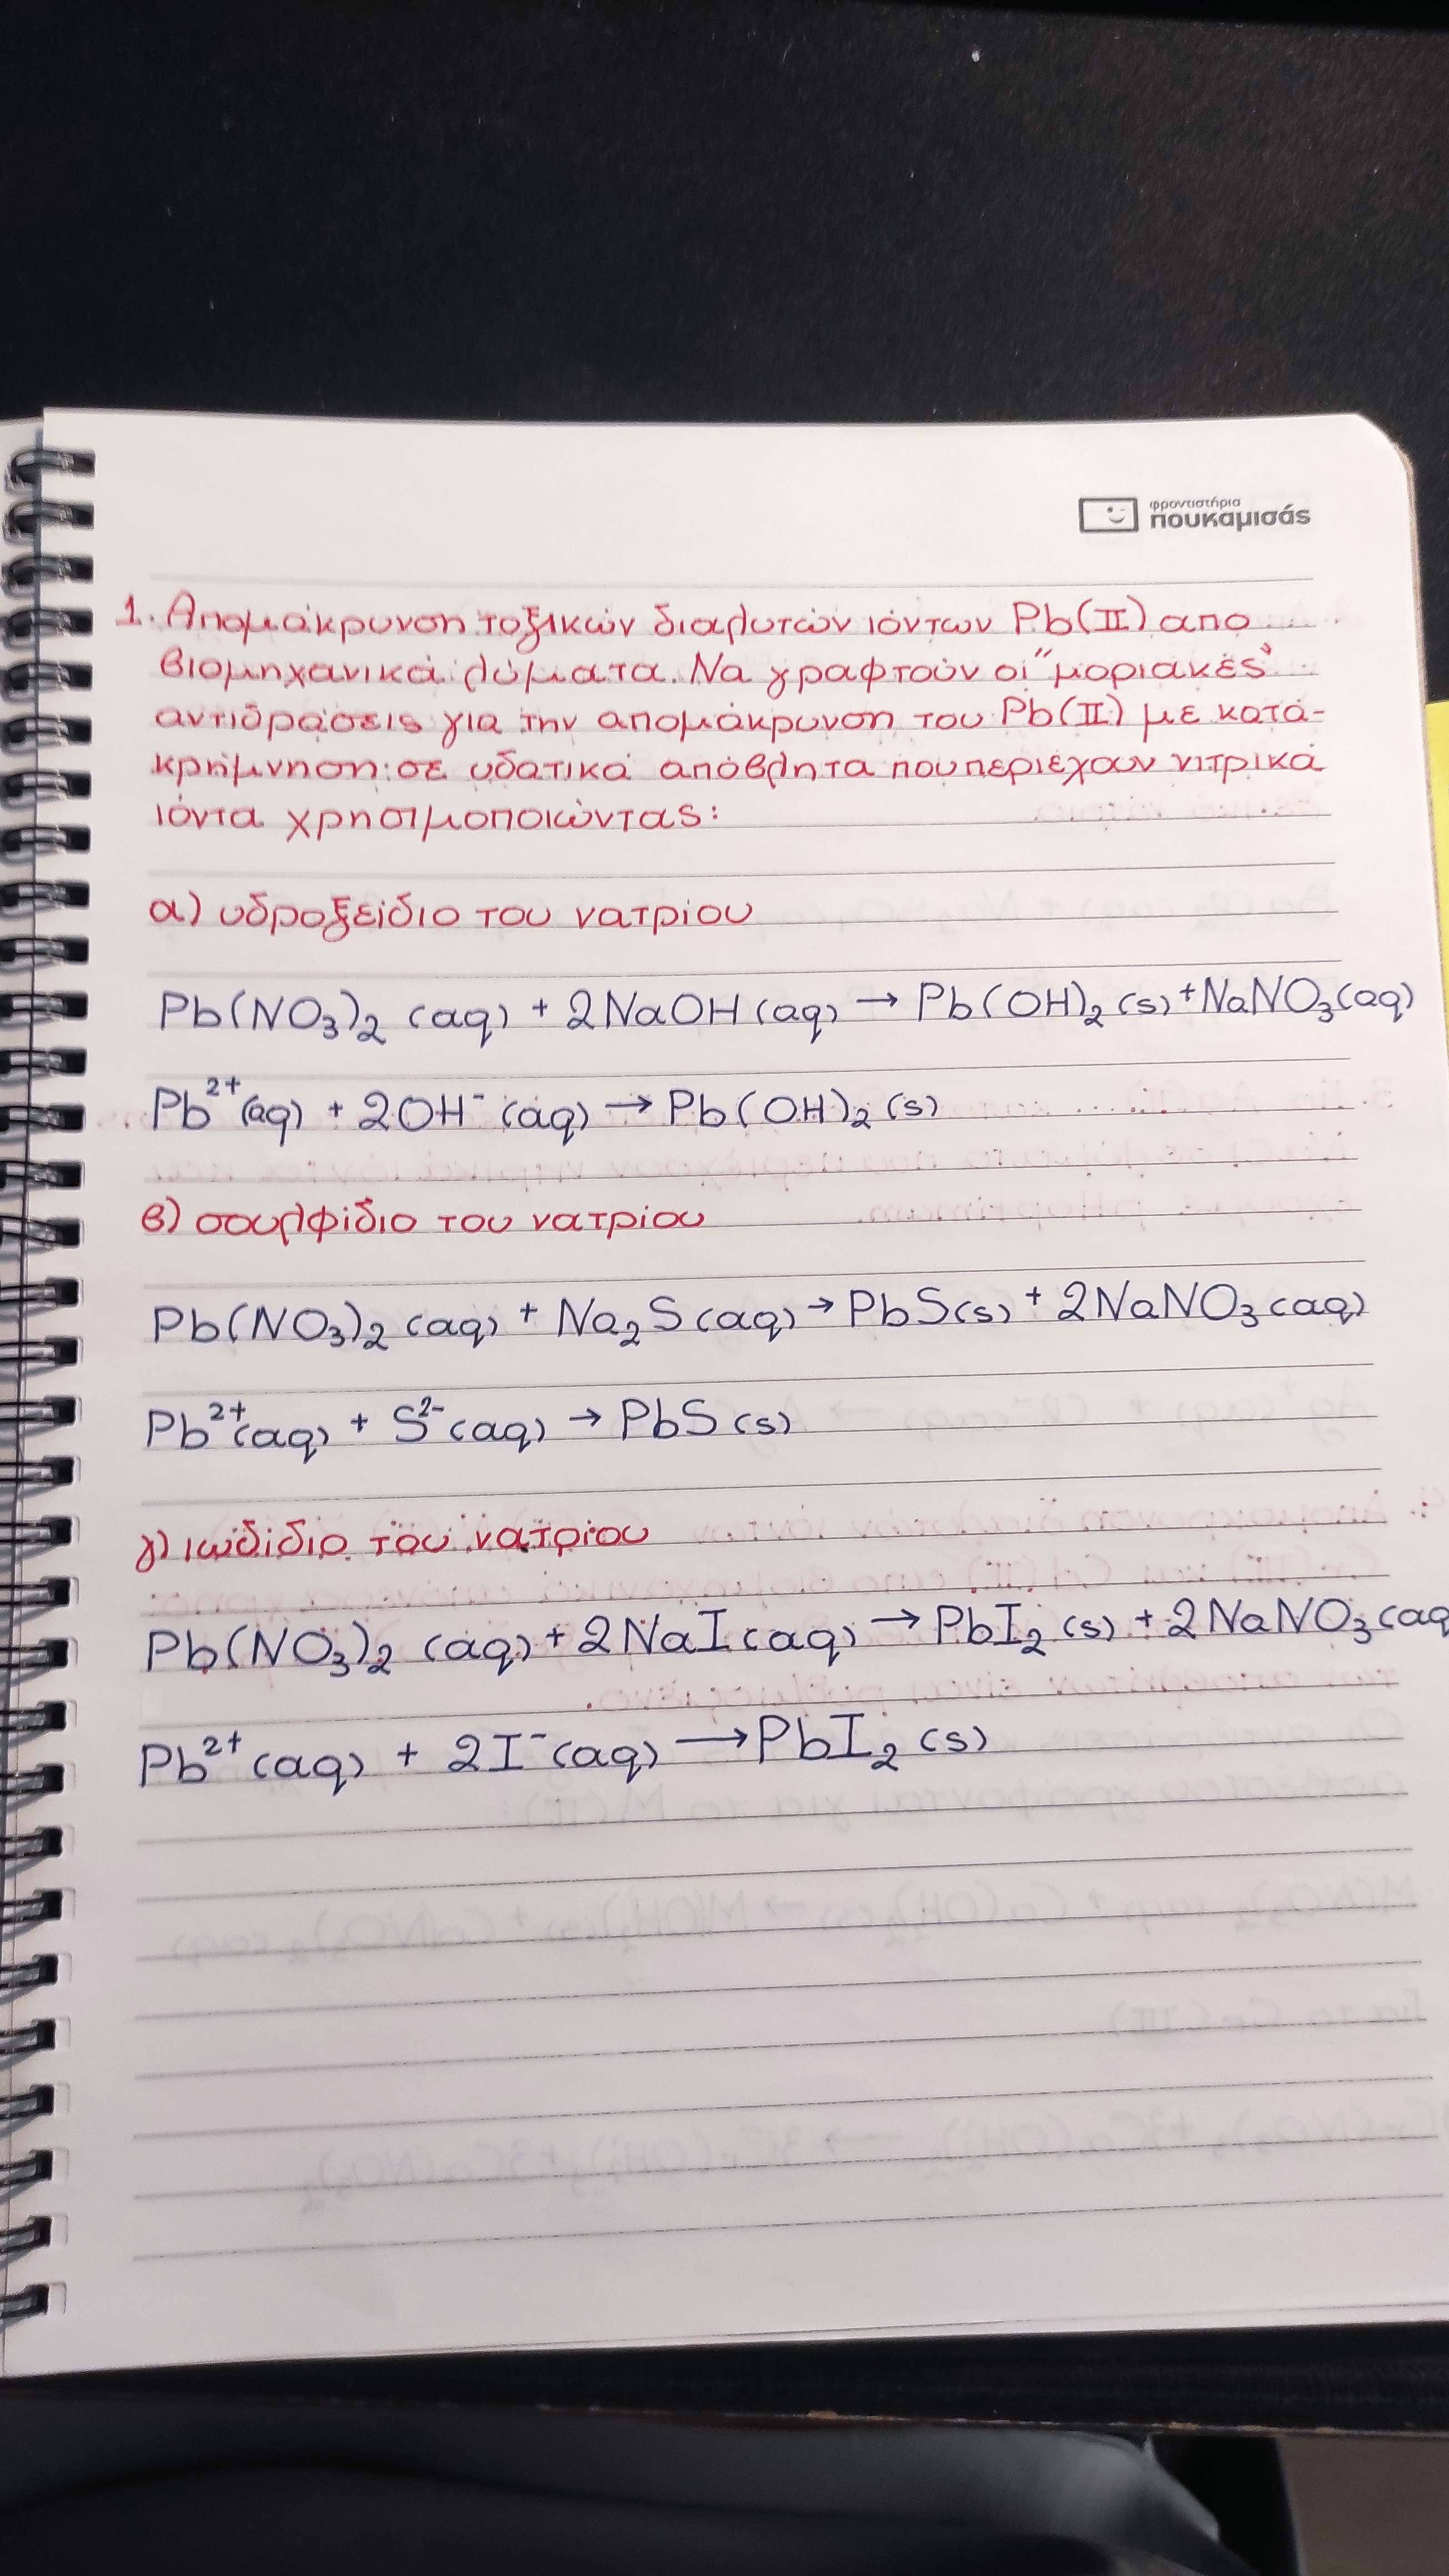 φροντιστήρια
πουκαμισάς
1. Απομάκρυνση τοξικών διαλυτών ιόντων Pb(II) απο
βιομηχανικά λύματα. Να γραφτούν οι "μοριακές"
αντιδράσεις για την απομάκρυνση του Pb(II) με κατά-
κρήμνηση σε υδατικά απόβλητα που περιέχουν νιτρικά
ιόντα χρησιμοποιώντας:
α) υδροξείδιο του νατρίου
Pb(NO₃)₂ (aq) + 2NaOH (aq) → Pb(OH)₂ (s) + NaNO₃(aq)
Pb²⁺(aq) + 2OH⁻ (aq) → Pb(OH)₂ (s)
β) σουλφίδιο του νατρίου
Pb(NO₃)₂ (aq) + Na₂S (aq) → PbS(s) + 2NaNO₃ (aq)
Pb²⁺(aq) + S²⁻(aq) → PbS (s)
γ) ιωδίδιο του νατρίου
Pb(NO₃)₂ (aq) + 2NaI (aq) → PbI₂ (s) + 2NaNO₃ (aq
Pb²⁺ (aq) + 2I⁻ (aq) → PbI₂ (s)